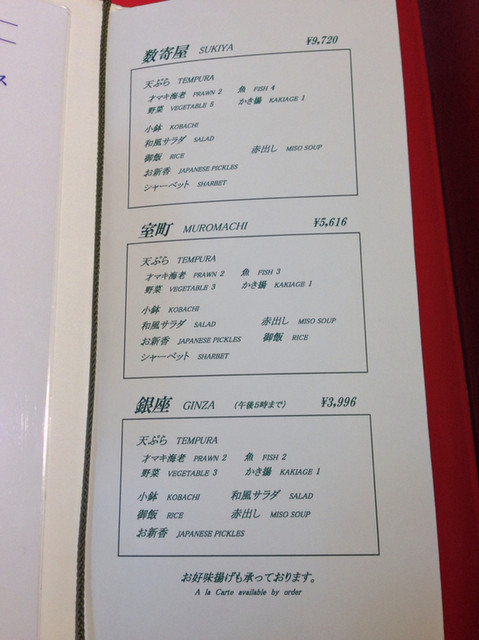 ス
数寄屋 SUKIYA ¥9,720
天ぷら TEMPURA
才マキ海老 PRAWN 2 魚 FISH 4
野菜 VEGETABLE 5 かき揚 KAKIAGE 1
小鉢 KOBACHI
和風サラダ SALAD
御飯 RICE 赤出し MISO SOUP
お新香 JAPANESE PICKLES
シャーベット SHARBET
室町 MUROMACHI ¥5,616
天ぷら TEMPURA
才マキ海老 PRAWN 2 魚 FISH 3
野菜 VEGETABLE 3 かき揚 KAKIAGE 1
小鉢 KOBACHI
和風サラダ SALAD 赤出し MISO SOUP
お新香 JAPANESE PICKLES 御飯 RICE
シャーベット SHARBET
銀座 GINZA (午後5時まで) ¥3,996
天ぷら TEMPURA
才マキ海老 PRAWN 2 魚 FISH 2
野菜 VEGETABLE 3 かき揚 KAKIAGE 1
小鉢 KOBACHI 和風サラダ SALAD
御飯 RICE 赤出し MISO SOUP
お新香 JAPANESE PICKLES
お好味揚げも承っております。
A la Carte available by order